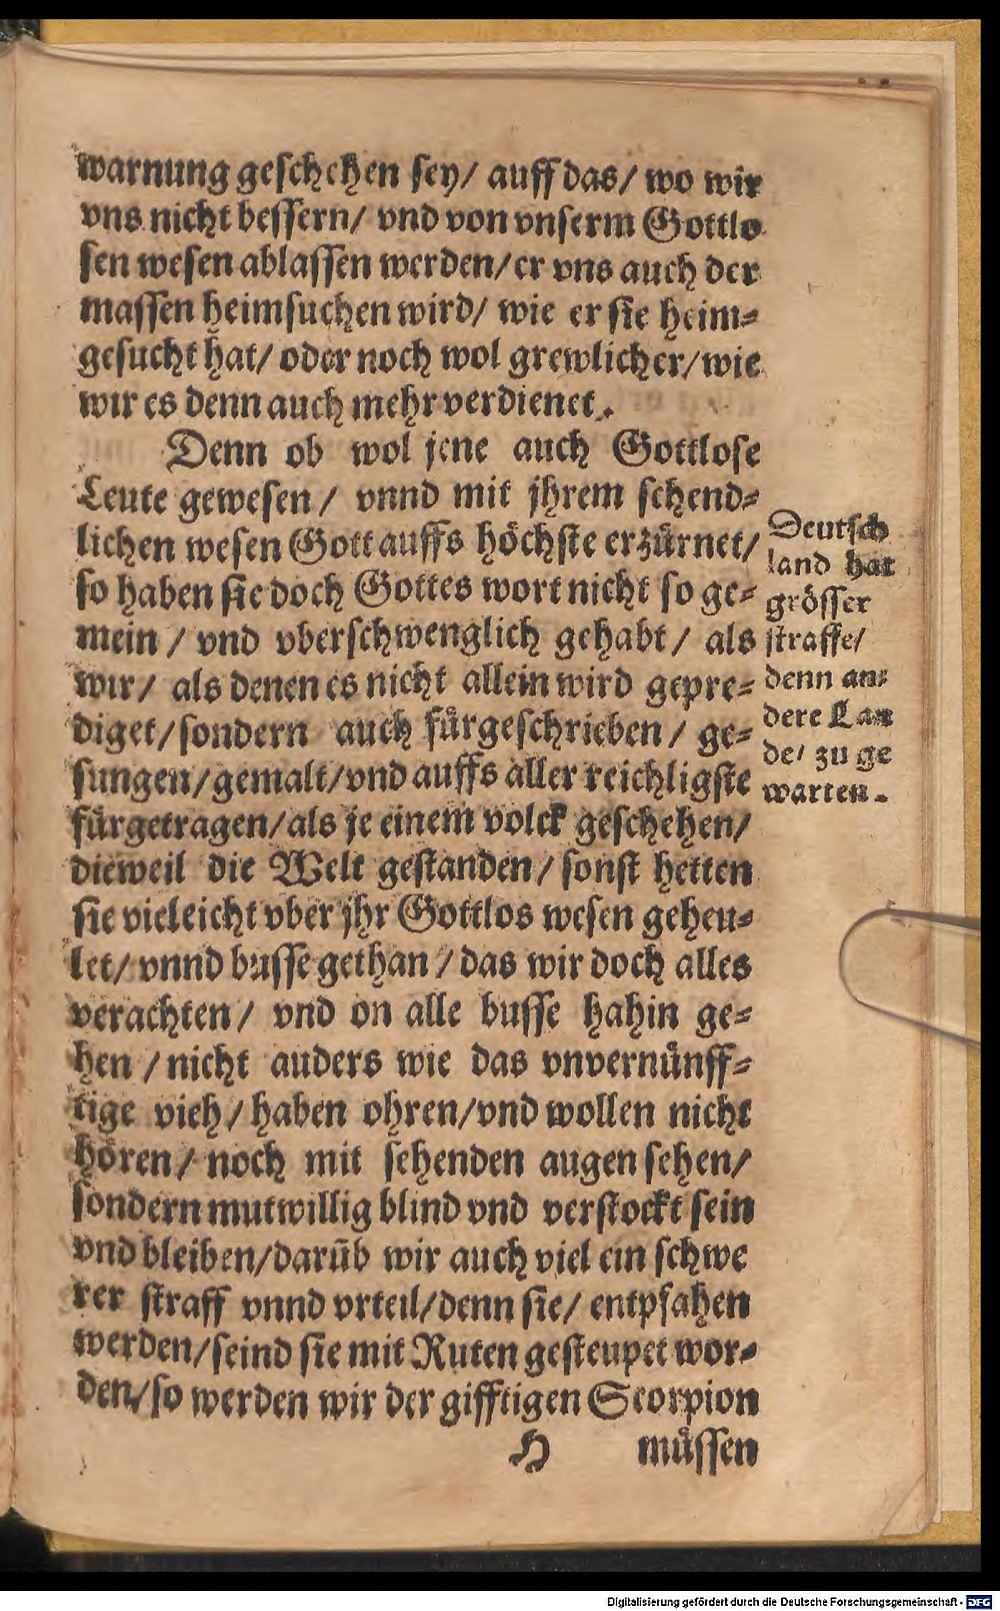 warnung geschehen sey/ auff das/ wo wir
vns nicht bessern/ vnd von vnserm Gottlo
sen wesen ablassen werden/ er vns auch der
massen heimsuchen wird/ wie er sie heim⸗
gesucht hat/ oder noch wol grewlicher/ wie
wir es denn auch mehr verdienet.
Denn ob wol jene auch Gottlose
Leute gewesen/ vnnd mit jhrem schend⸗
lichen wesen Gott auffs höchste erzürnet/
so haben sie doch Gottes wort nicht so ge⸗
mein/ vnd vberschwenglich gehabt/ als
wir/ als denen es nicht allein wird gepre⸗
diget/ sondern auch fürgeschrieben/ ge⸗
sungen/ gemalt/ vnd auffs aller reichligste
fürgetragen/ als je einem volck geschehen/
dieweil die Welt gestanden/ sonst hetten
sie vieleicht vber jhr Gottlos wesen geheu⸗
let/ vnnd busse gethan/ das wir doch alles
verachten/ vnd on alle busse hahin ge⸗
hen/ nicht auders wie das vnvernünff⸗
tige vieh/ haben ohren/ vnd wollen nicht
hören/ noch mit sehenden augen sehen/
sondern mutwillig blind vnd verstockt sein
vnd bleiben/ darüb wir auch viel ein schwe
rer straff vnnd vrteil/ denn sie/ entpfahen
werden/ seind sie mit Ruten gesteupet wor⸗
den/ so werden wir der gifftigen Scorpion
H müssen
Deutsch
land hat
grösser
straffe/
denn an⸗
dere Lan
de/ zu ge
warten.
Digitalisierung gefördert durch die Deutsche Forschungsgemeinschaft - DFG